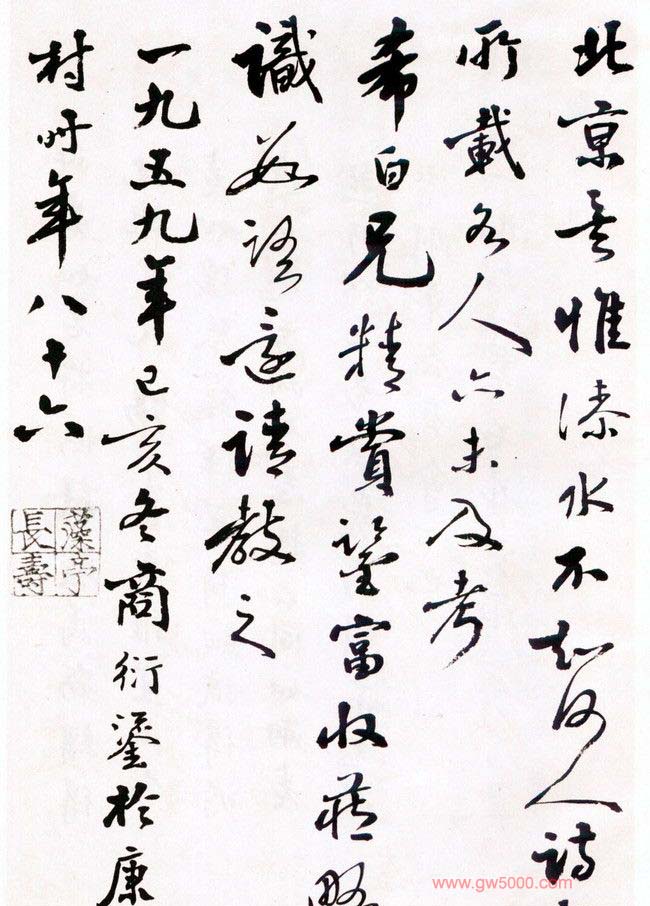 北京矣惟溱水不知何人詩
所載各人亦未及考
希白兄精賞鑒富收藏略
識數語還請教之
一九五九年己亥冬商衍鎏於康
村時年八十六
藻亭
長壽
www.gw5000.com